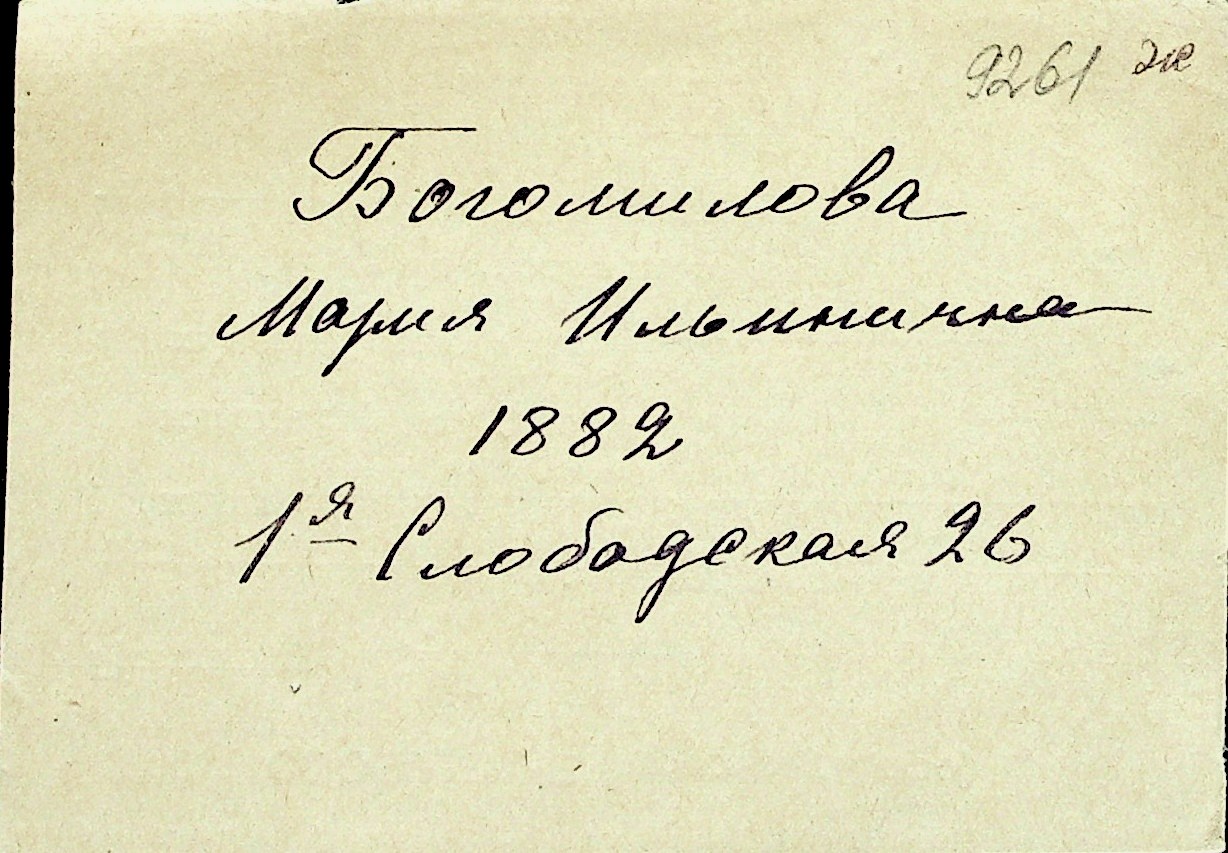 9261 ж
Богомилова
Мария Ильинична
1882
1я Слободская 26